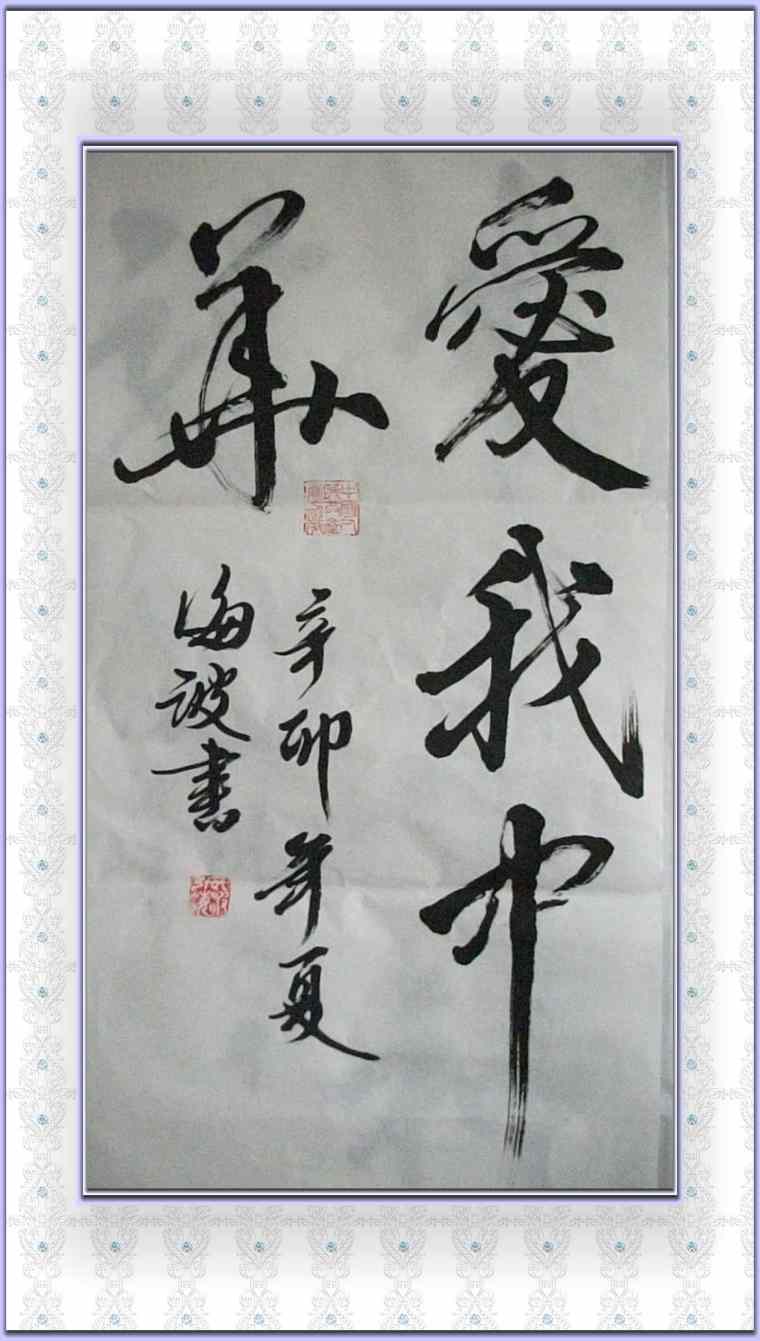 愛我中
華
辛卯年夏
海波書